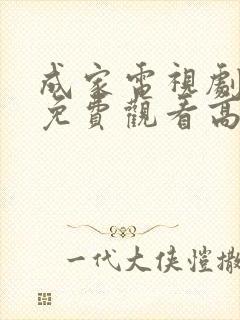 成家電視劇
免費觀看高
一代大俠愷撒